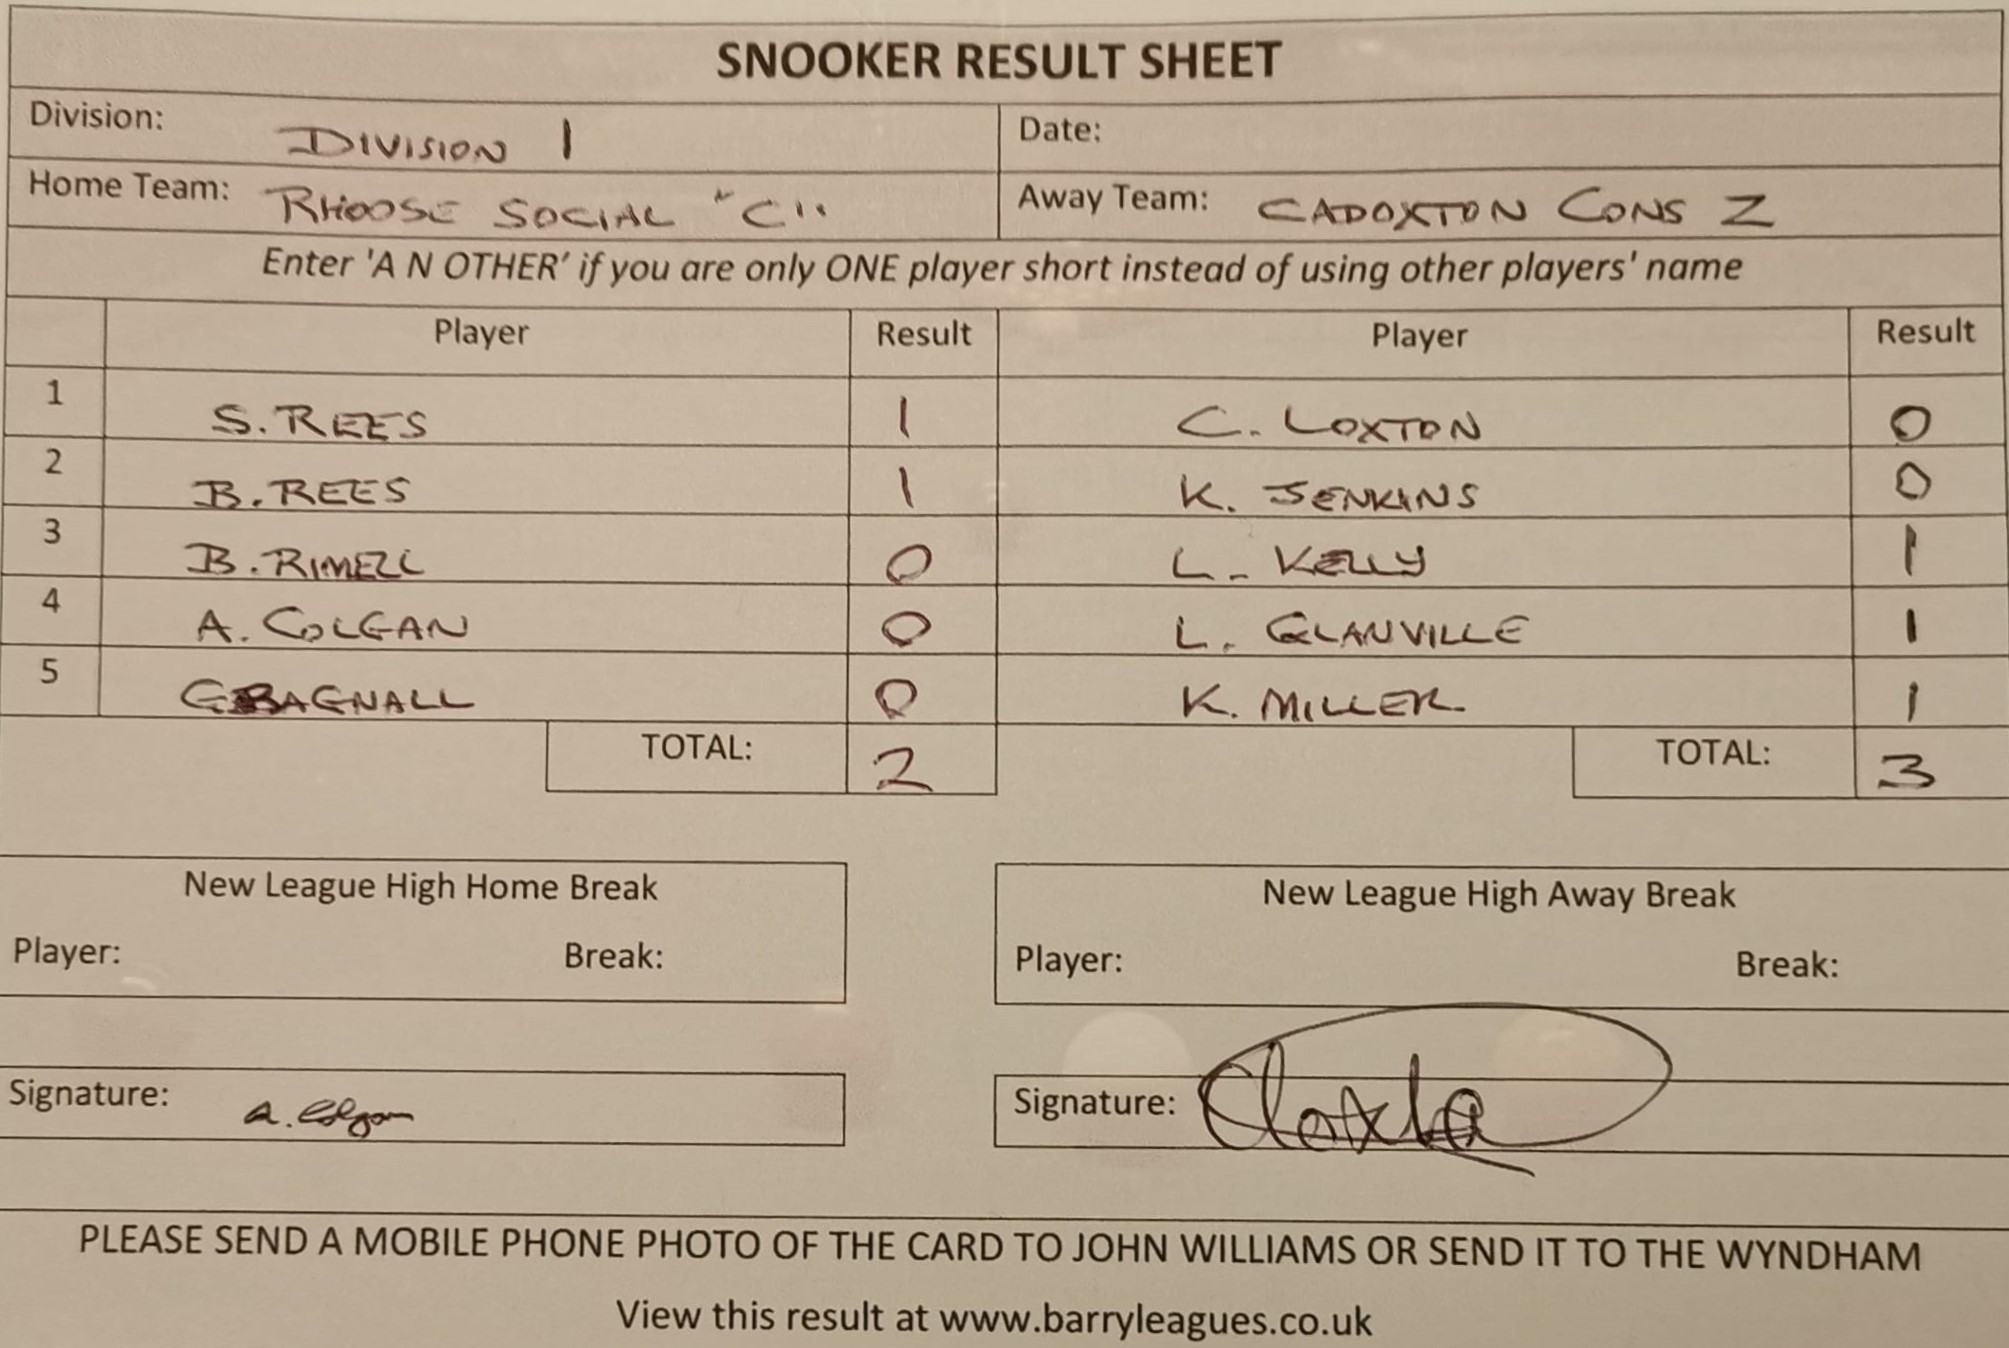 SNOOKER RESULT SHEET
Division: DIVISION 1 Date:
Home Team: RHOOSE SOCIAL "C" Away Team: CADOXTON CONS Z
Enter 'A N OTHER' if you are only ONE player short instead of using other players' name
Player Result Player Result
1 S. REES 1 C. LOXTON 0
2 B. REES 1 K. JENKINS 0
3 B. RIMELL 0 L. KELLY 1
4 A. COLGAN 0 L. GLANVILLE 1
5 G BAGNALL 0 K. MILLER 1
TOTAL: 2 TOTAL: 3
New League High Home Break New League High Away Break
Player: Break: Player: Break:
Signature: A. Colgan Signature: CLoxton
PLEASE SEND A MOBILE PHONE PHOTO OF THE CARD TO JOHN WILLIAMS OR SEND IT TO THE WYNDHAM
View this result at www.barryleagues.co.uk